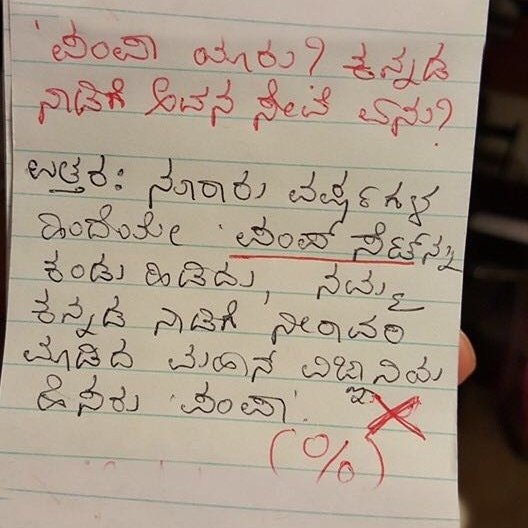 'ಪಂಪಾ ಯಾರು? ಕನ್ನಡ
ನಾಡಿಗೆ ಅವನ ಸೇವೆ ಏನು?
ಉತ್ತರ: ನೂರಾರು ವರ್ಷಗಳ
ಹಿಂದೆಯೇ 'ಪಂಪ್ ಸೆಟ್‌ನ್ನು
ಕಂಡು ಹಿಡಿದು, ನಮ್ಮ
ಕನ್ನಡ ನಾಡಿಗೆ ನೀರಾವರಿ
ಮಾಡಿದ ಮಹಾನ್ ವಿಜ್ಞಾನಿಯ
ಹೆಸರು 'ಪಂಪಾ'.
(0%)